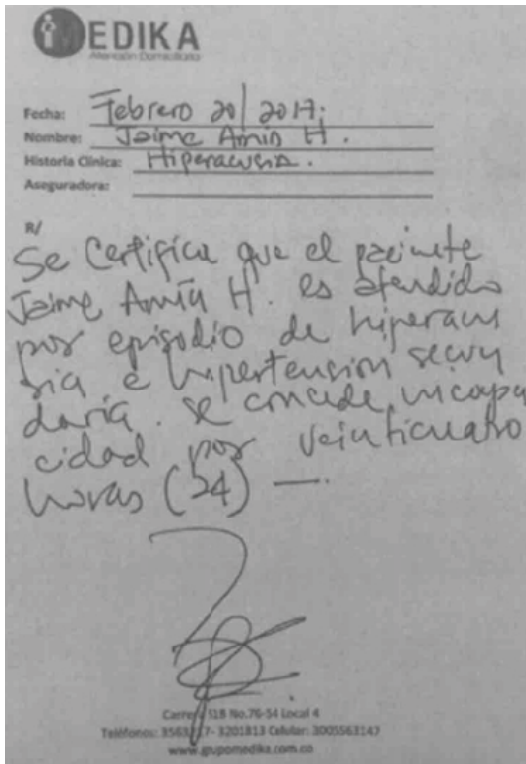 MEDIKA
Atención Domiciliaria
Fecha: Febrero 20/2017.
Nombre: Jaime Amin H.
Historia Clínica: Hiperacusia.
Aseguradora:
R/
Se Certifica que el paciente
Jaime Amin H. es atendido
por episodio de hiperacu
sia e hipertensión secun
daria. se concede incapa
cidad por veinticuatro
horas (24) —.
Carrera 51B No.76-54 Local 4
Teléfonos: - 3201813 Celular: 3005563147
www.grupomedika.com.co